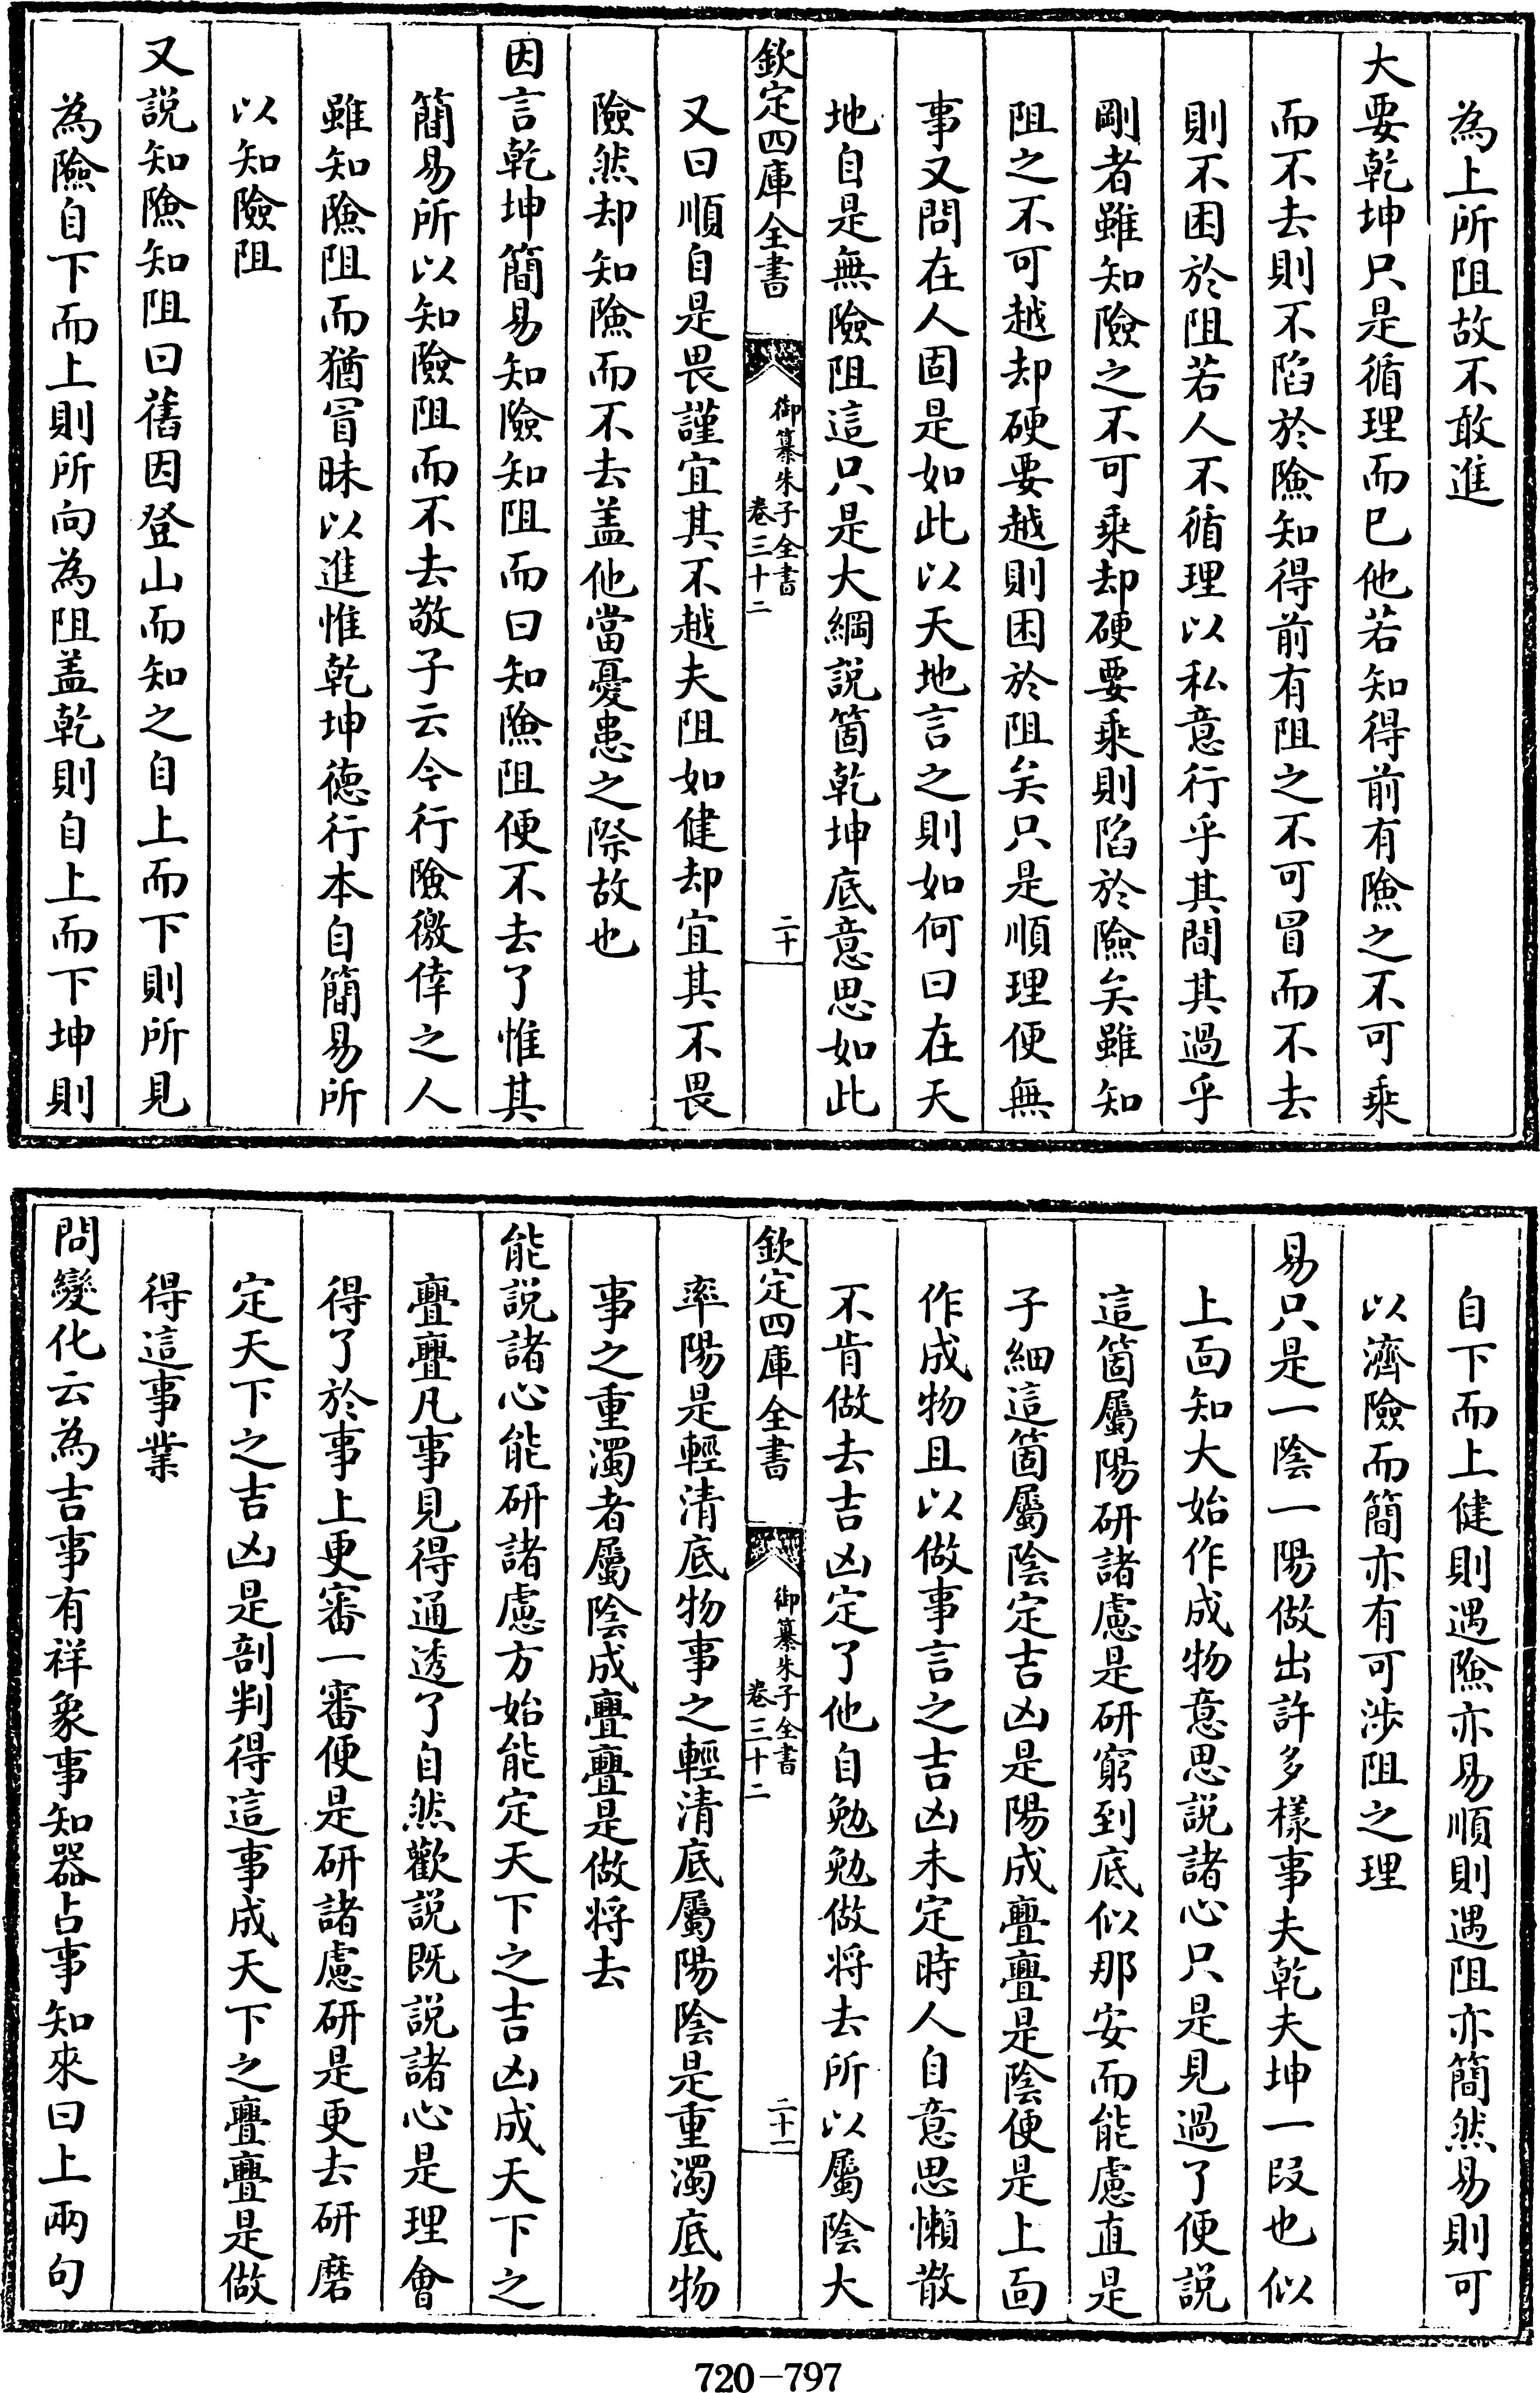 為上所阻故不敢進
大要乾坤只是循理而已他若知得前有險之不可乗
而不去則不陷於險知得前有阻之不可冒而不去
則不困於阻若人不循理以私意行乎其間其過乎
剛者雖知險之不可乗却硬要乗則陷於險矣雖知
阻之不可越却硬要越則困於阻矣只是順理便無
事又問在人固是如此以天地言之則如何曰在天
地自是無險阻這只是大綱説箇乾坤底意思如此
欽定四庫全書
御纂朱子全書
卷三十二
二十
又曰順自是畏謹宜其不越夫阻如健却宜其不畏
險然却知險而不去盖他當憂患之際故也
因言乾坤簡易知險知阻而曰知險阻便不去了惟其
簡易所以知險阻而不去敬子云今行險徼倖之人
雖知險阻而猶冒昧以進惟乾坤德行本自簡易所
以知險阻
又説知險知阻曰舊因登山而知之自上而下則所見
為險自下而上則所向為阻盖乾則自上而下坤則
自下而上健則遇險亦易順則遇阻亦簡然易則可
以濟險而簡亦有可渉阻之理
易只是一陰一陽做出許多様事夫乾夫坤一段也似
上面知大始作成物意思説諸心只是見過了便説
這箇屬陽研諸慮是研窮到底似那安而能慮直是
子細這箇屬陰定吉凶是陽成亹亹是陰便是上面
作成物且以做事言之吉凶未定時人自意思懶散
不肯做去吉凶定了他自勉勉做将去所以屬陰大
欽定四庫全書
御纂朱子全書
卷三十二
二十一
率陽是輕清底物事之輕清底屬陽陰是重濁底物
事之重濁者屬陰成亹亹是做将去
能説諸心能研諸慮方始能定天下之吉凶成天下之
亹亹凡事見得通透了自然歡説既説諸心是理會
得了於事上更審一審便是研諸慮研是更去研磨
定天下之吉凶是剖判得這事成天下之亹亹是做
得這事業
問變化云為吉事有祥象事知器占事知來曰上兩句
720-797